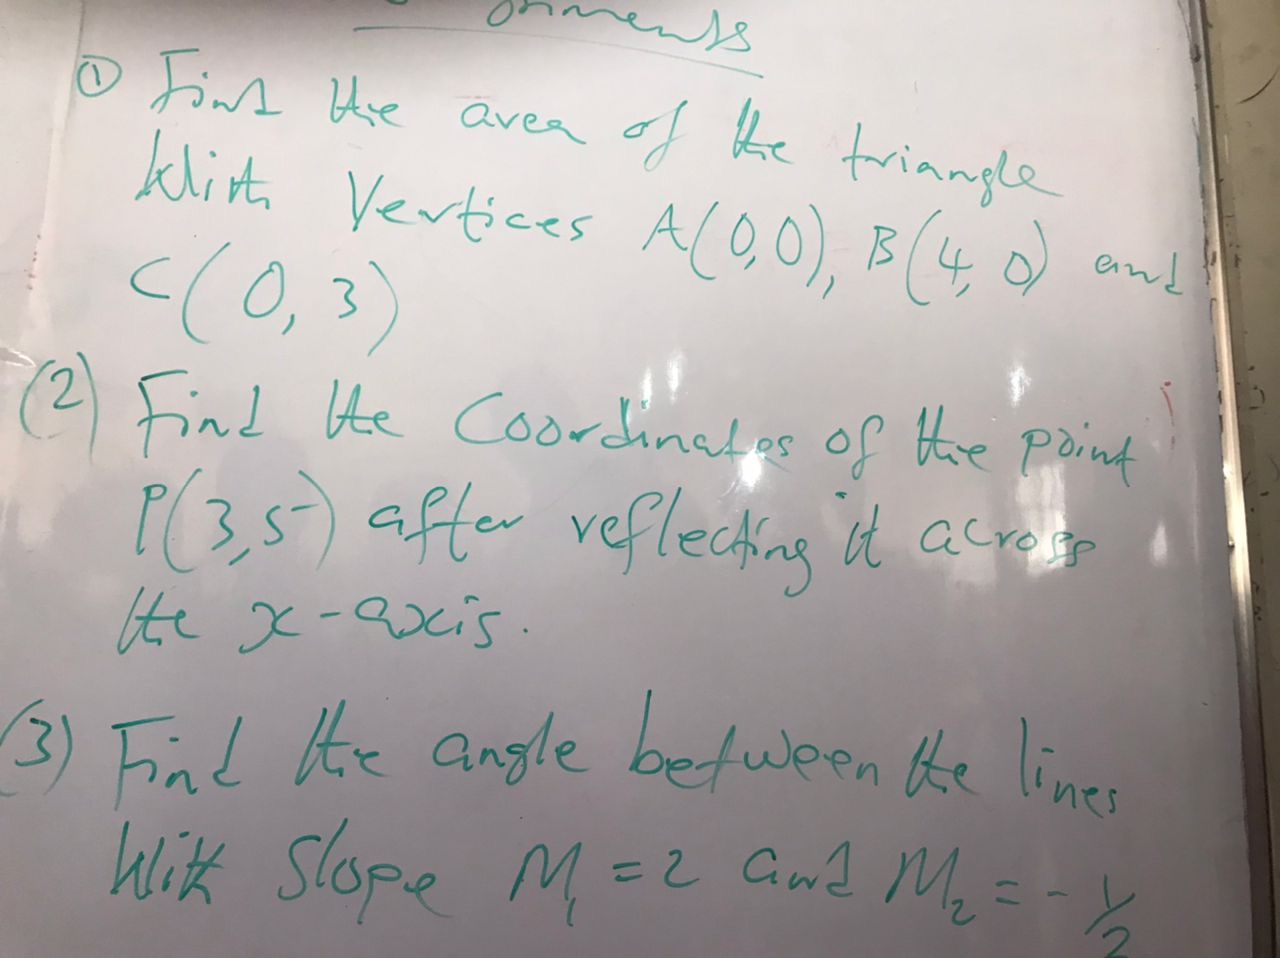 ① Find the area of the triangle
With Vertices A(0,0), B(4,0) and
C(0,3)
(2) Find the Coordinates of the point
P(3,5) after reflecting it across
the x-axis.
(3) Find the angle between the lines
With Slope M₁ = 2 and M₂ = -1/2